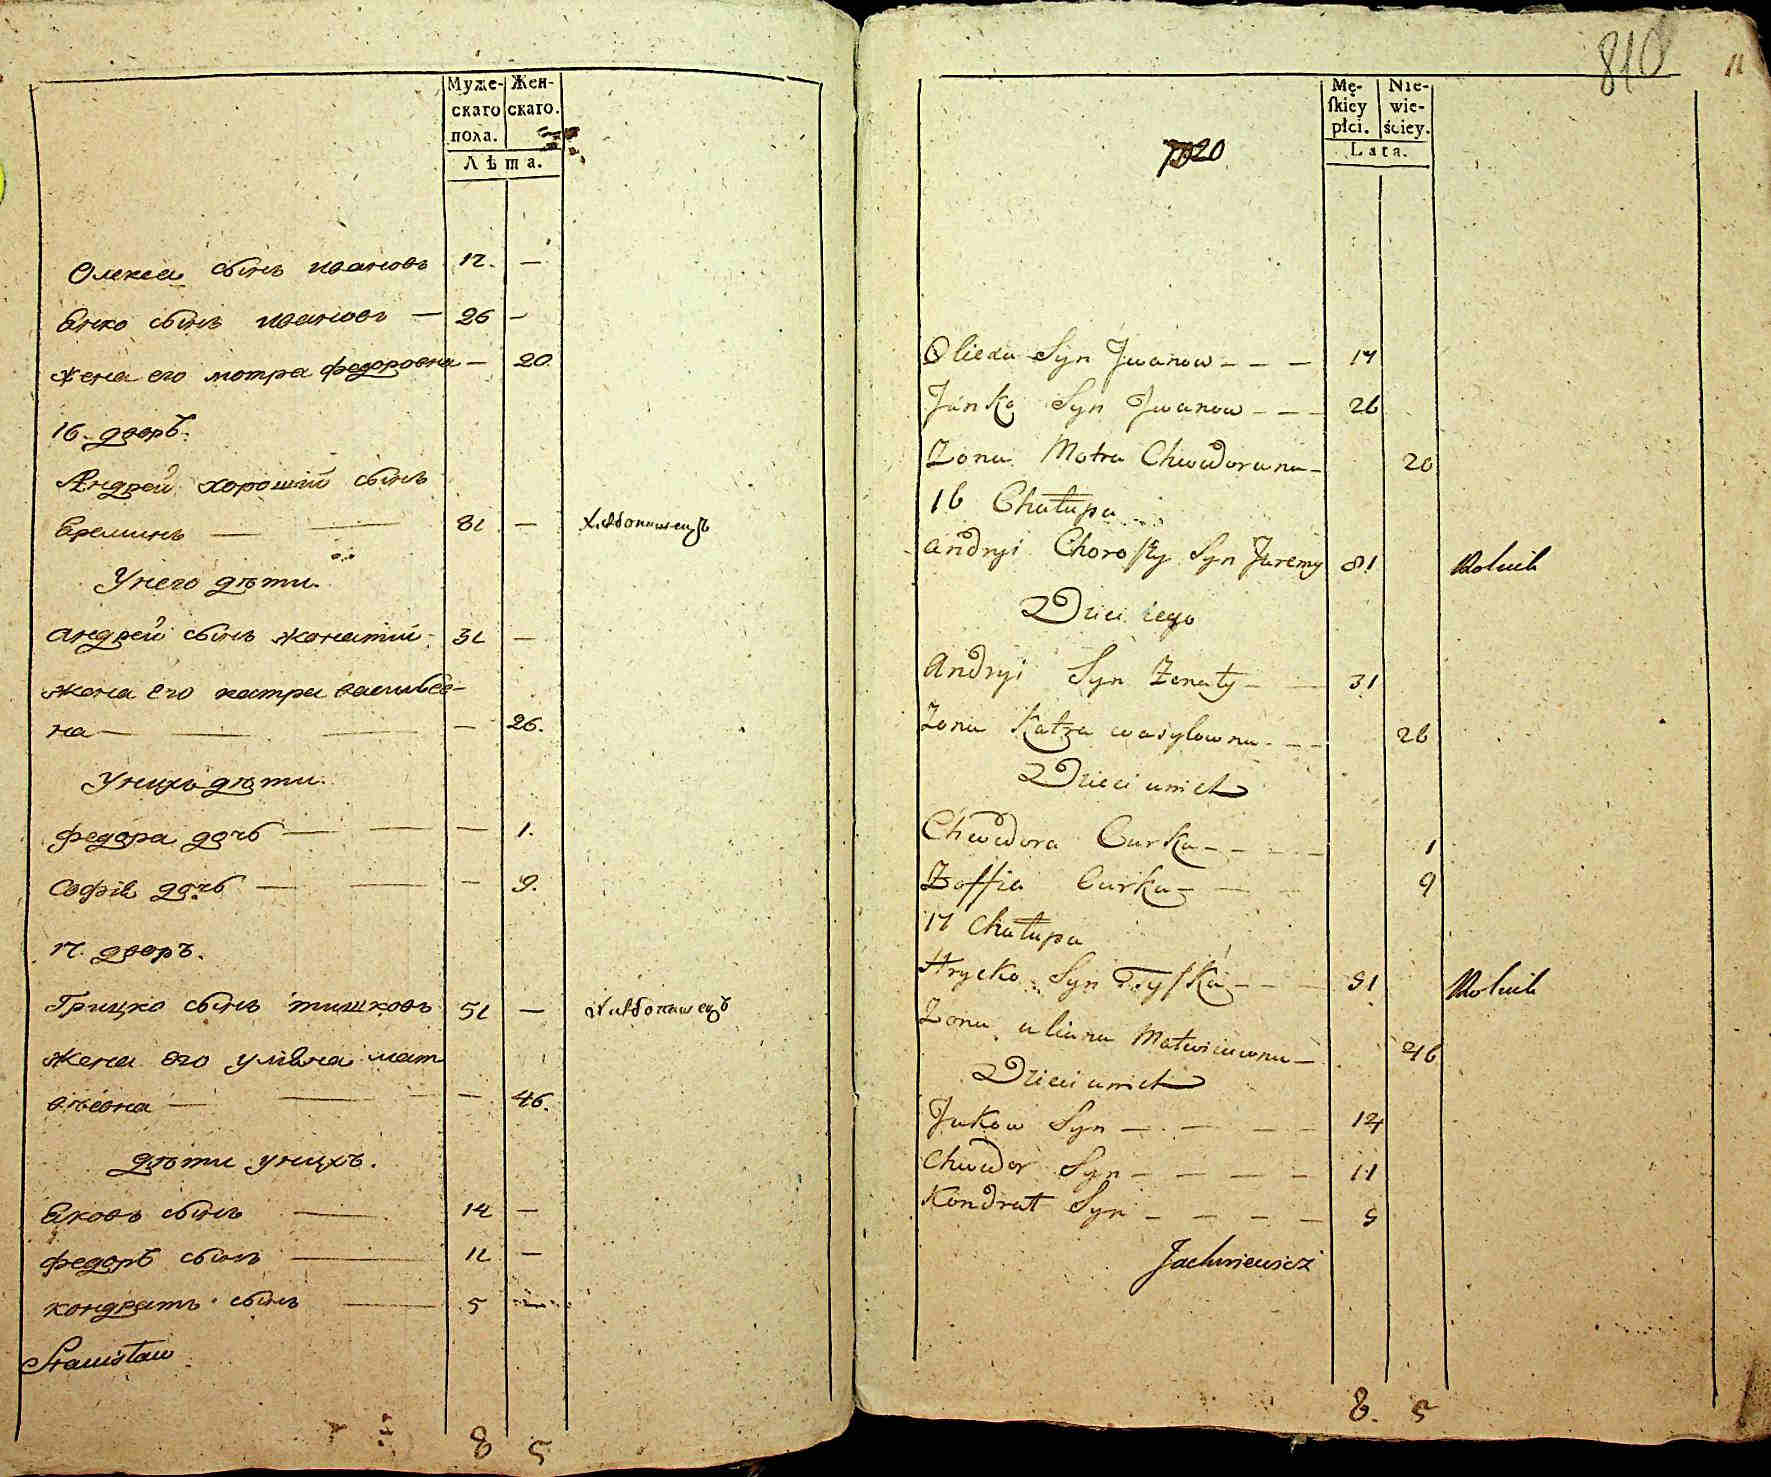 Муже-
скаго
пола.
Жен-
скаго.
Лѣта.
Олекса сынъ ивановъ 17. —
Янко сынъ ивановъ — 26 —
жена его мотра федоровна — 20
16. дворъ.
Андрей хорошій сынъ
Яреминъ — — 81 — хлѣбопашецъ
У него дѣти.
андрей сынъ жонатий 31 —
жена его катра василѣв-
на — — — — 26.
У нихъ дѣти.
федора дочь — — — 1.
Софія дочь — — — 9.
17. дворъ.
Грицко сынъ тишковъ 51 — хлѣбопашецъ
жена его уляна мат
вѣевна — — — — 46.
дѣти у нихъ.
Яковъ сынъ — 14 —
федоръ сынъ — 11 —
кондратъ сынъ — 5 —
Stanisław
8 5
810
11
Mę-
ſkiey
płci.
Nie-
wie-
ściey.
Lata.
20
Oliexa Syn Jwanow - - - 17
Janko Syn Jwanow - - - 26
Zona Motra Chwedorowna - 20
16 Chałupa
Andryi Choroſzy Syn Jaremy 81 Rolnik
Dzieci iego
Andryi Syn Zonaty - - 31
Zona Katra wasylowna - - - 26
Dzieci u nich
Chwedora Curka - - - - 1
Zoffia Curka - - - 9
17 Chałupa
Hrycko Syn Tyſzka - - - 51 Rolnik
Zona uliana Matwieiewna - 46
Dzieci u nich
Jakow Syn - - - - 14
Chwedor Syn - - - - 11
Kondrat Syn - - - - 5
Jachniewicz
8. 5